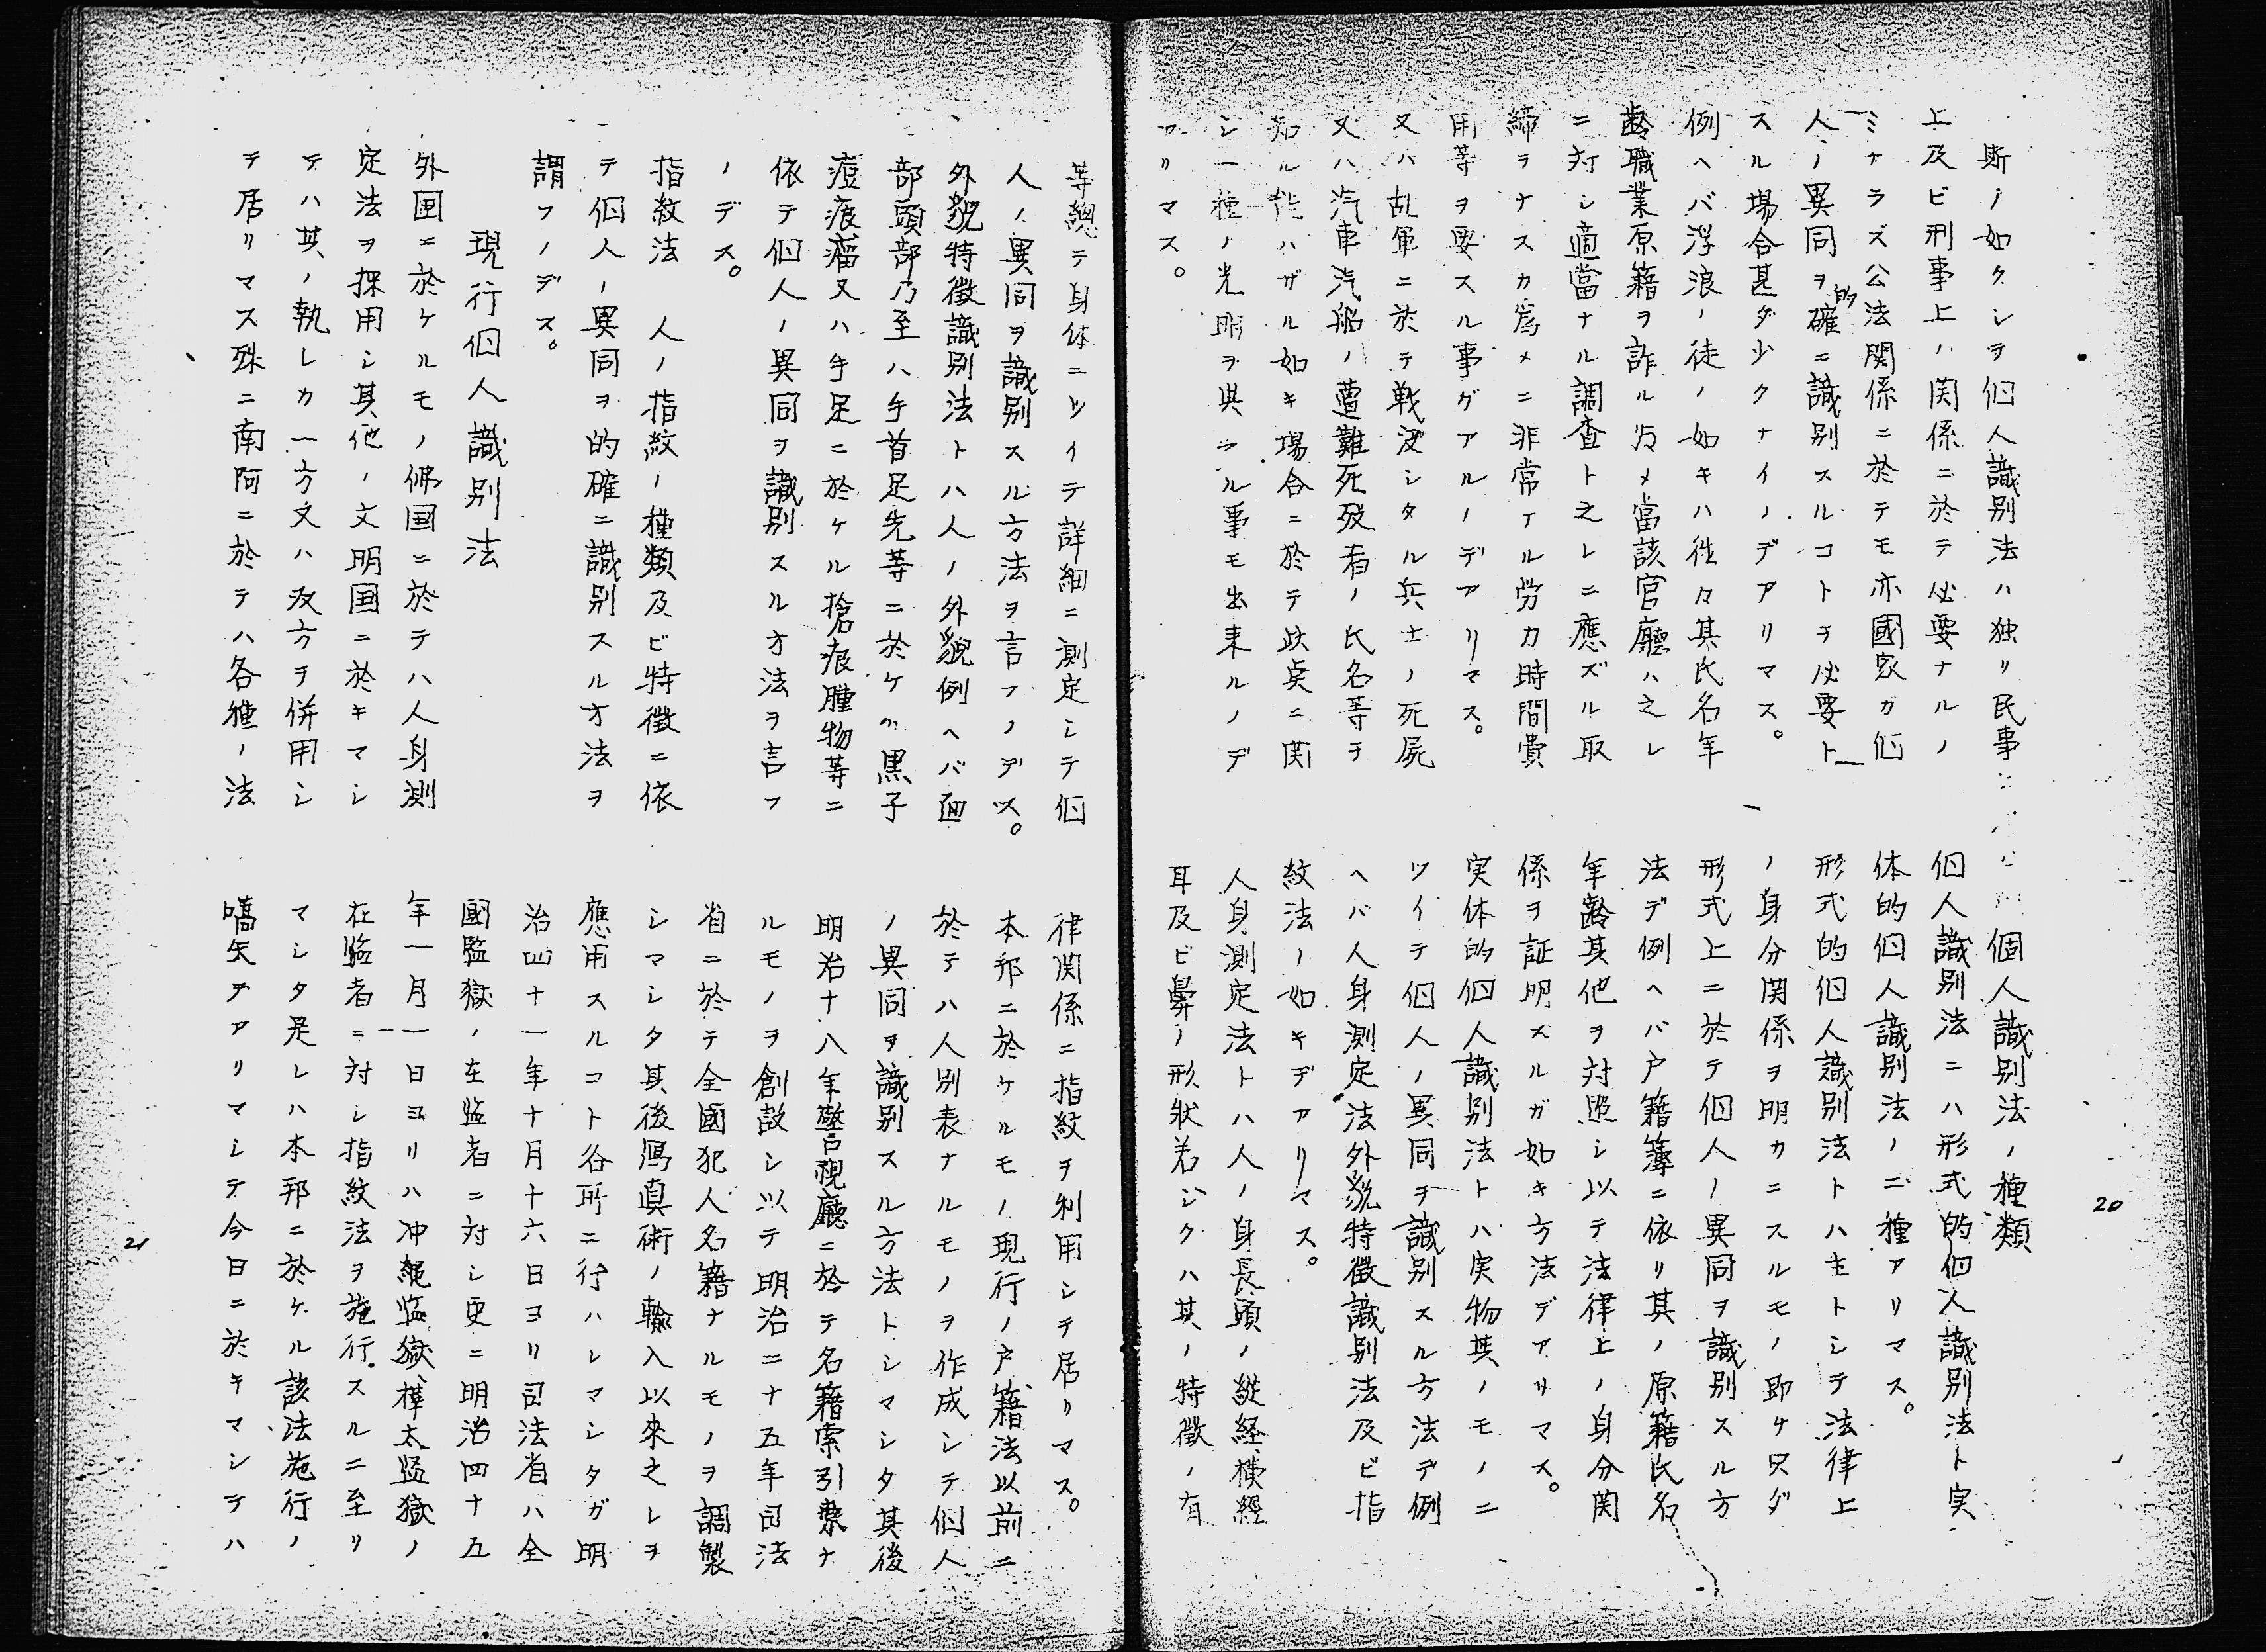 斯ノ如クシテ個人識別法ハ独リ民事
上及ビ刑事上ノ関係ニ於テ必要ナルノ
ミナラズ公法関係ニ於テモ亦國家カ個
人ノ異同ヲ的確ニ識別スルコトヲ必要ト
スル場合甚ダ少クナイノデアリマス。
例ヘバ浮浪ノ徒ノ如キハ往々其氏名年
齢職業原籍ヲ詐ル為メ當該官廳ハ之レ
ニ対シ適當ナル調査ト之レニ應ズル取
締ヲナスカ為メニ非常ナル労力時間費
用等ヲ要スル事ガアルノデアリマス。
又ハ乱軍ニ於テ戦没シタル兵士ノ死屍
又ハ汽車汽船ノ遭難死歿者ノ氏名等ヲ
知ル能ハザル如キ場合ニ於テ此点ニ関
シ一種ノ光明ヲ與ヘル事モ出来ルノデ
アリマス。
個人識別法ノ種類
個人識別法ニハ形式的個人識別法ト実
体的個人識別法ノ二種アリマス。
形式的個人識別法トハ主トシテ法律上
ノ身分関係ヲ明カニスルモノ即ケ只ダ
形式上ニ於テ個人ノ異同ヲ識別スル方
法デ例ヘバ戸籍簿ニ依リ其ノ原籍氏名
年齢其他ヲ対照シ以テ法律上ノ身分関
係ヲ証明スルガ如キ方法デアリマス。
実体的個人識別法トハ実物其ノモノニ
ツイテ個人ノ異同ヲ識別スル方法デ例
ヘバ人身測定法外貌特徴識別法及ビ指
紋法ノ如キデアリマス。
人身測定法トハ人ノ身長頭ノ縦経、横経
耳及ビ鼻ノ形状若シクハ其ノ特徴ノ有
20
等總テ身体ニツイテ詳細ニ測定シテ個
人ノ異同ヲ識別スル方法ヲ言フノデス。
外貌特徴識別法トハ人ノ外貌例ヘバ面
部頭部乃至ハ手首足先等ニ於ケル黒子
痘痕瘤又ハ手足ニ於ケル搶痕腫物等ニ
依テ個人ノ異同ヲ識別スル方法ヲ言フ
ノデス。
指紋法 人ノ指紋ノ種類及ビ特徴ニ依
テ個人ノ異同ヲ的確ニ識別スル方法ヲ
謂フノデス。
現行個人識別法
外国ニ於ケルモノ佛国ニ於テハ人身測
定法ヲ採用シ其他ノ文明国ニ於キマシ
テハ其ノ執レカ一方又ハ双方ヲ併用シ
テ居リマス殊ニ南阿ニ於テハ各種ノ法
律関係ニ指紋ヲ利用シテ居リマス。
本邦ニ於ケルモノ現行ノ戸籍法以前ニ
於テハ人別表ナルモノヲ作成シテ個人
ノ異同ヲ識別スル方法トシマシタ其後
明治十八年警視廳ニ於テ名籍索引票ナ
ルモノヲ創設シ以テ明治二十五年司法
省ニ於テ全國犯人名籍ナルモノヲ調製
シマシタ其後寫真術ノ輸入以來之レヲ
應用スルコト各所ニ行ハレマシタガ明
治四十一年十月十六日ヨリ司法省ハ全
國監獄ノ在監者ニ対シ更ニ明治四十五
年一月一日ヨリハ沖縄監獄、樺太監獄ノ
在監者ニ対シ指紋法ヲ施行スルニ至リ
マシタ是レハ本邦ニ於ケル該法施行ノ
嚆矢デアリマシテ今日ニ於キマシテハ
21